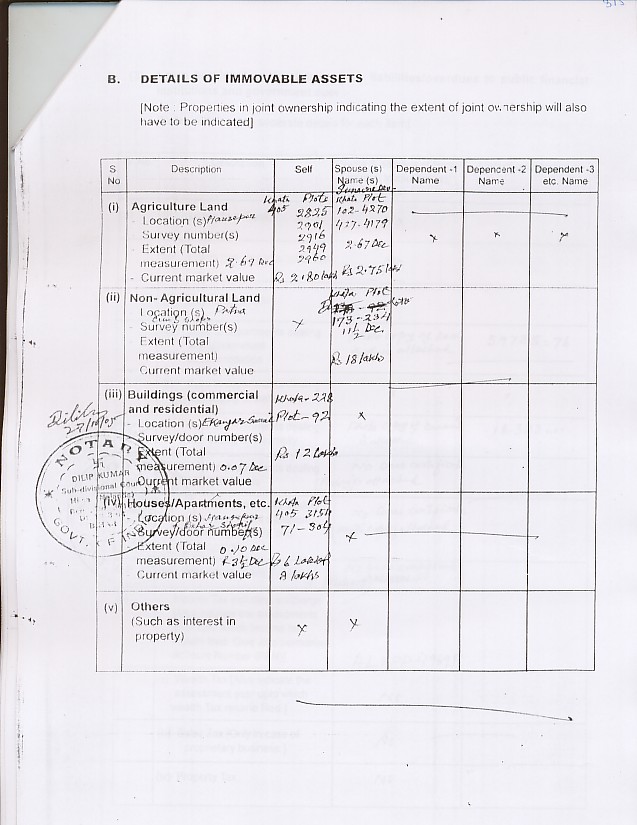 B. DETAILS OF IMMOVABLE ASSETS
[Note : Properties in joint ownership indicating the extent of joint ownership will also
have to be indicated]
S No Description Self Spouse (s) Name (s) Dependent -1 Name Dependent -2 Name Dependent -3 etc. Name
(i) Agriculture Land Khata Plots Khata Plot
- Location (s) 405 2825 102-4270
Survey number(s) 2901 427-4179
- Extent (Total 2916 x x x
2949 2.67 Dec
measurement) 2.67 Dec 2960
- Current market value Rs 2.80 lakh Rs 2.75 lakh
(ii) Non- Agricultural Land Khata Plot
- Location (s) Patna
- Survey number(s) x 173-234
Extent (Total 11½ Dec
measurement) Rs 18 lakhs
Current market value
(iii) Buildings (commercial Khata- 228
and residential)
- Location (s) Plot- 92 x
Survey/door number(s)
Extent (Total Rs 12 Lakhs
measurement) 0.07 Dec
Current market value
27/10/05
NOTARY
DILIP KUMAR
Sub-divisional Court
GOVT. OF INDIA
(iv) Houses/Apartments, etc. Khata Plot
Location (s) 405 3154
Survey/door number(s) 71-304
Extent (Total 0.10 Dec x
measurement) & 3½ Dec Rs 6 Lakhs
Current market value 8 lakhs
(v) Others
(Such as interest in x x
property)